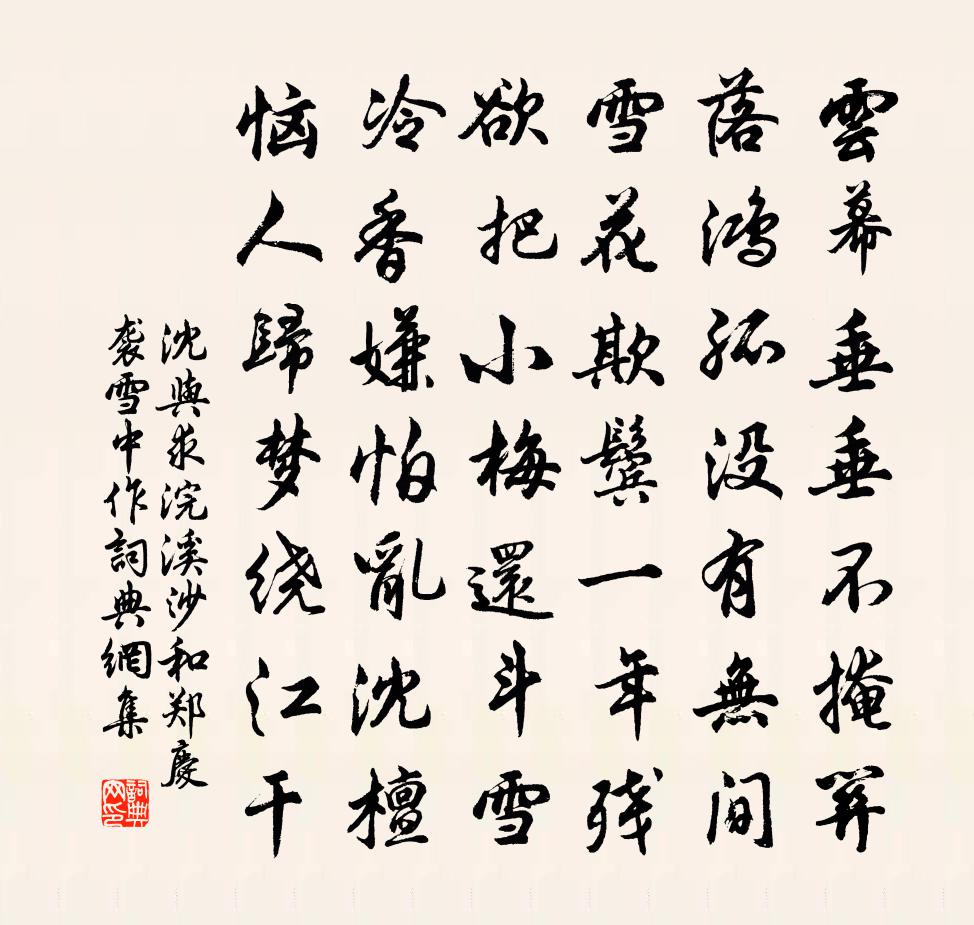 雲幕垂垂不掩關
落鴻孤没有無間
雪花欺鬓一年残
欲把小梅還斗雪
冷香嫌怕亂沈檀
恼人歸梦绕江干
沈與求浣溪沙和郑慶
袭雪中作詞典網集
詞典网印